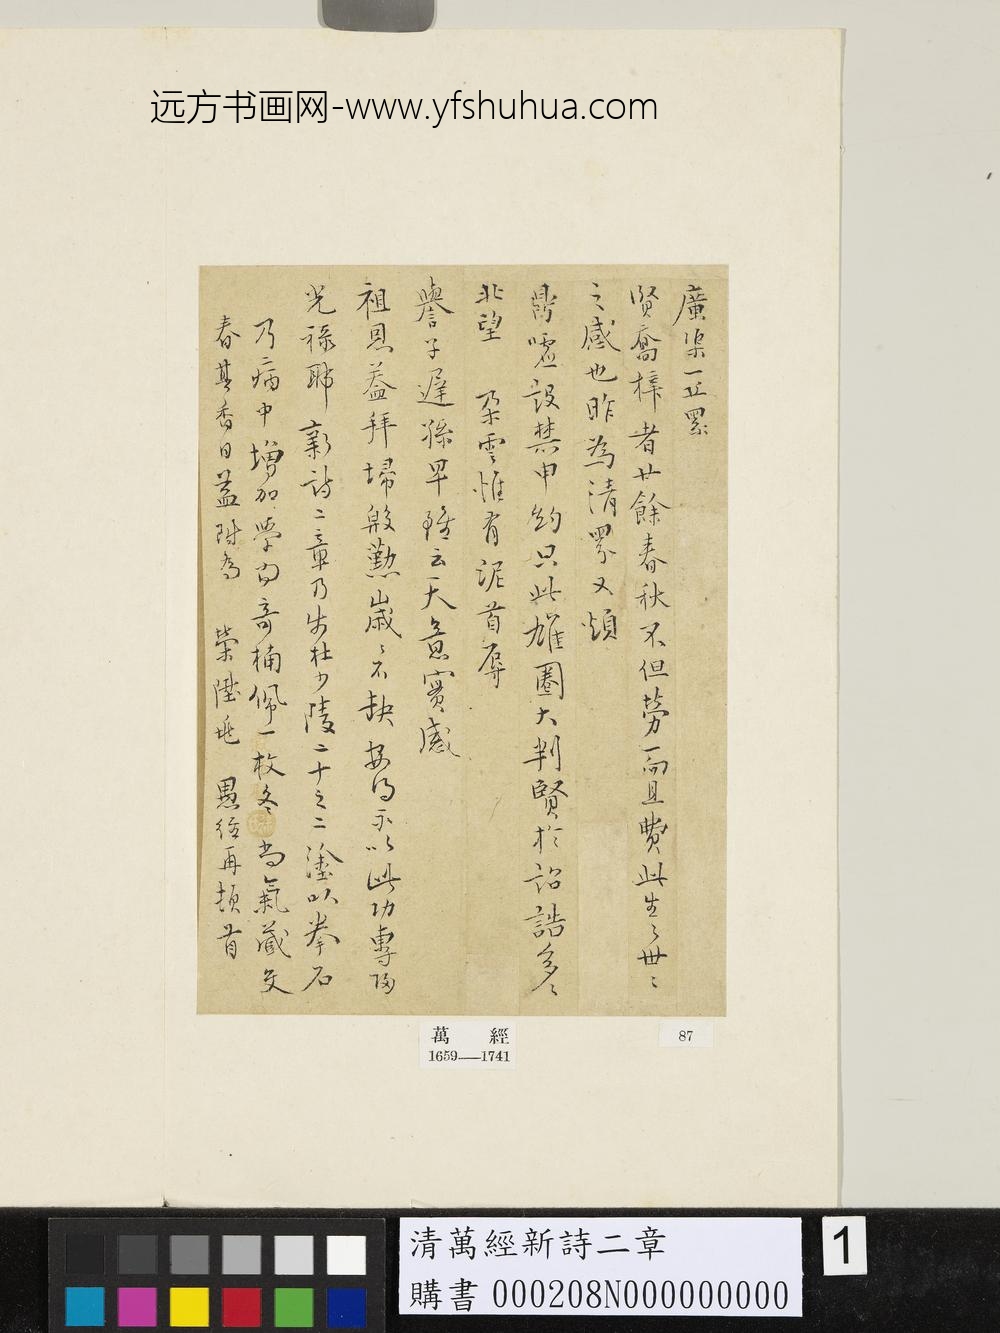 远方书画网-www.yfshuhua.com
廣渠一丘累
賢喬梓者廿餘春秋不但勞而且費此生々世々
之感也昨為清累又煩
鼎噓設禁申約只此雄圈大判賢於詔誥多々
北望 朵雲惟有泥首辱
譽子遲孫早雖云天意實感
祖恩益拜埽殷勤歲々不缺安得不以此功專歸
光祿耶 新詩二章乃步杜少陵二十之二塗以拳石
乃病中增加學問奇楠佩一枚冬尚氣藏交
春其香日益附為 榮陞兆 愚經再頓首
萬 經
1659—1741
87
清萬經新詩二章
購書 000208N000000000
1